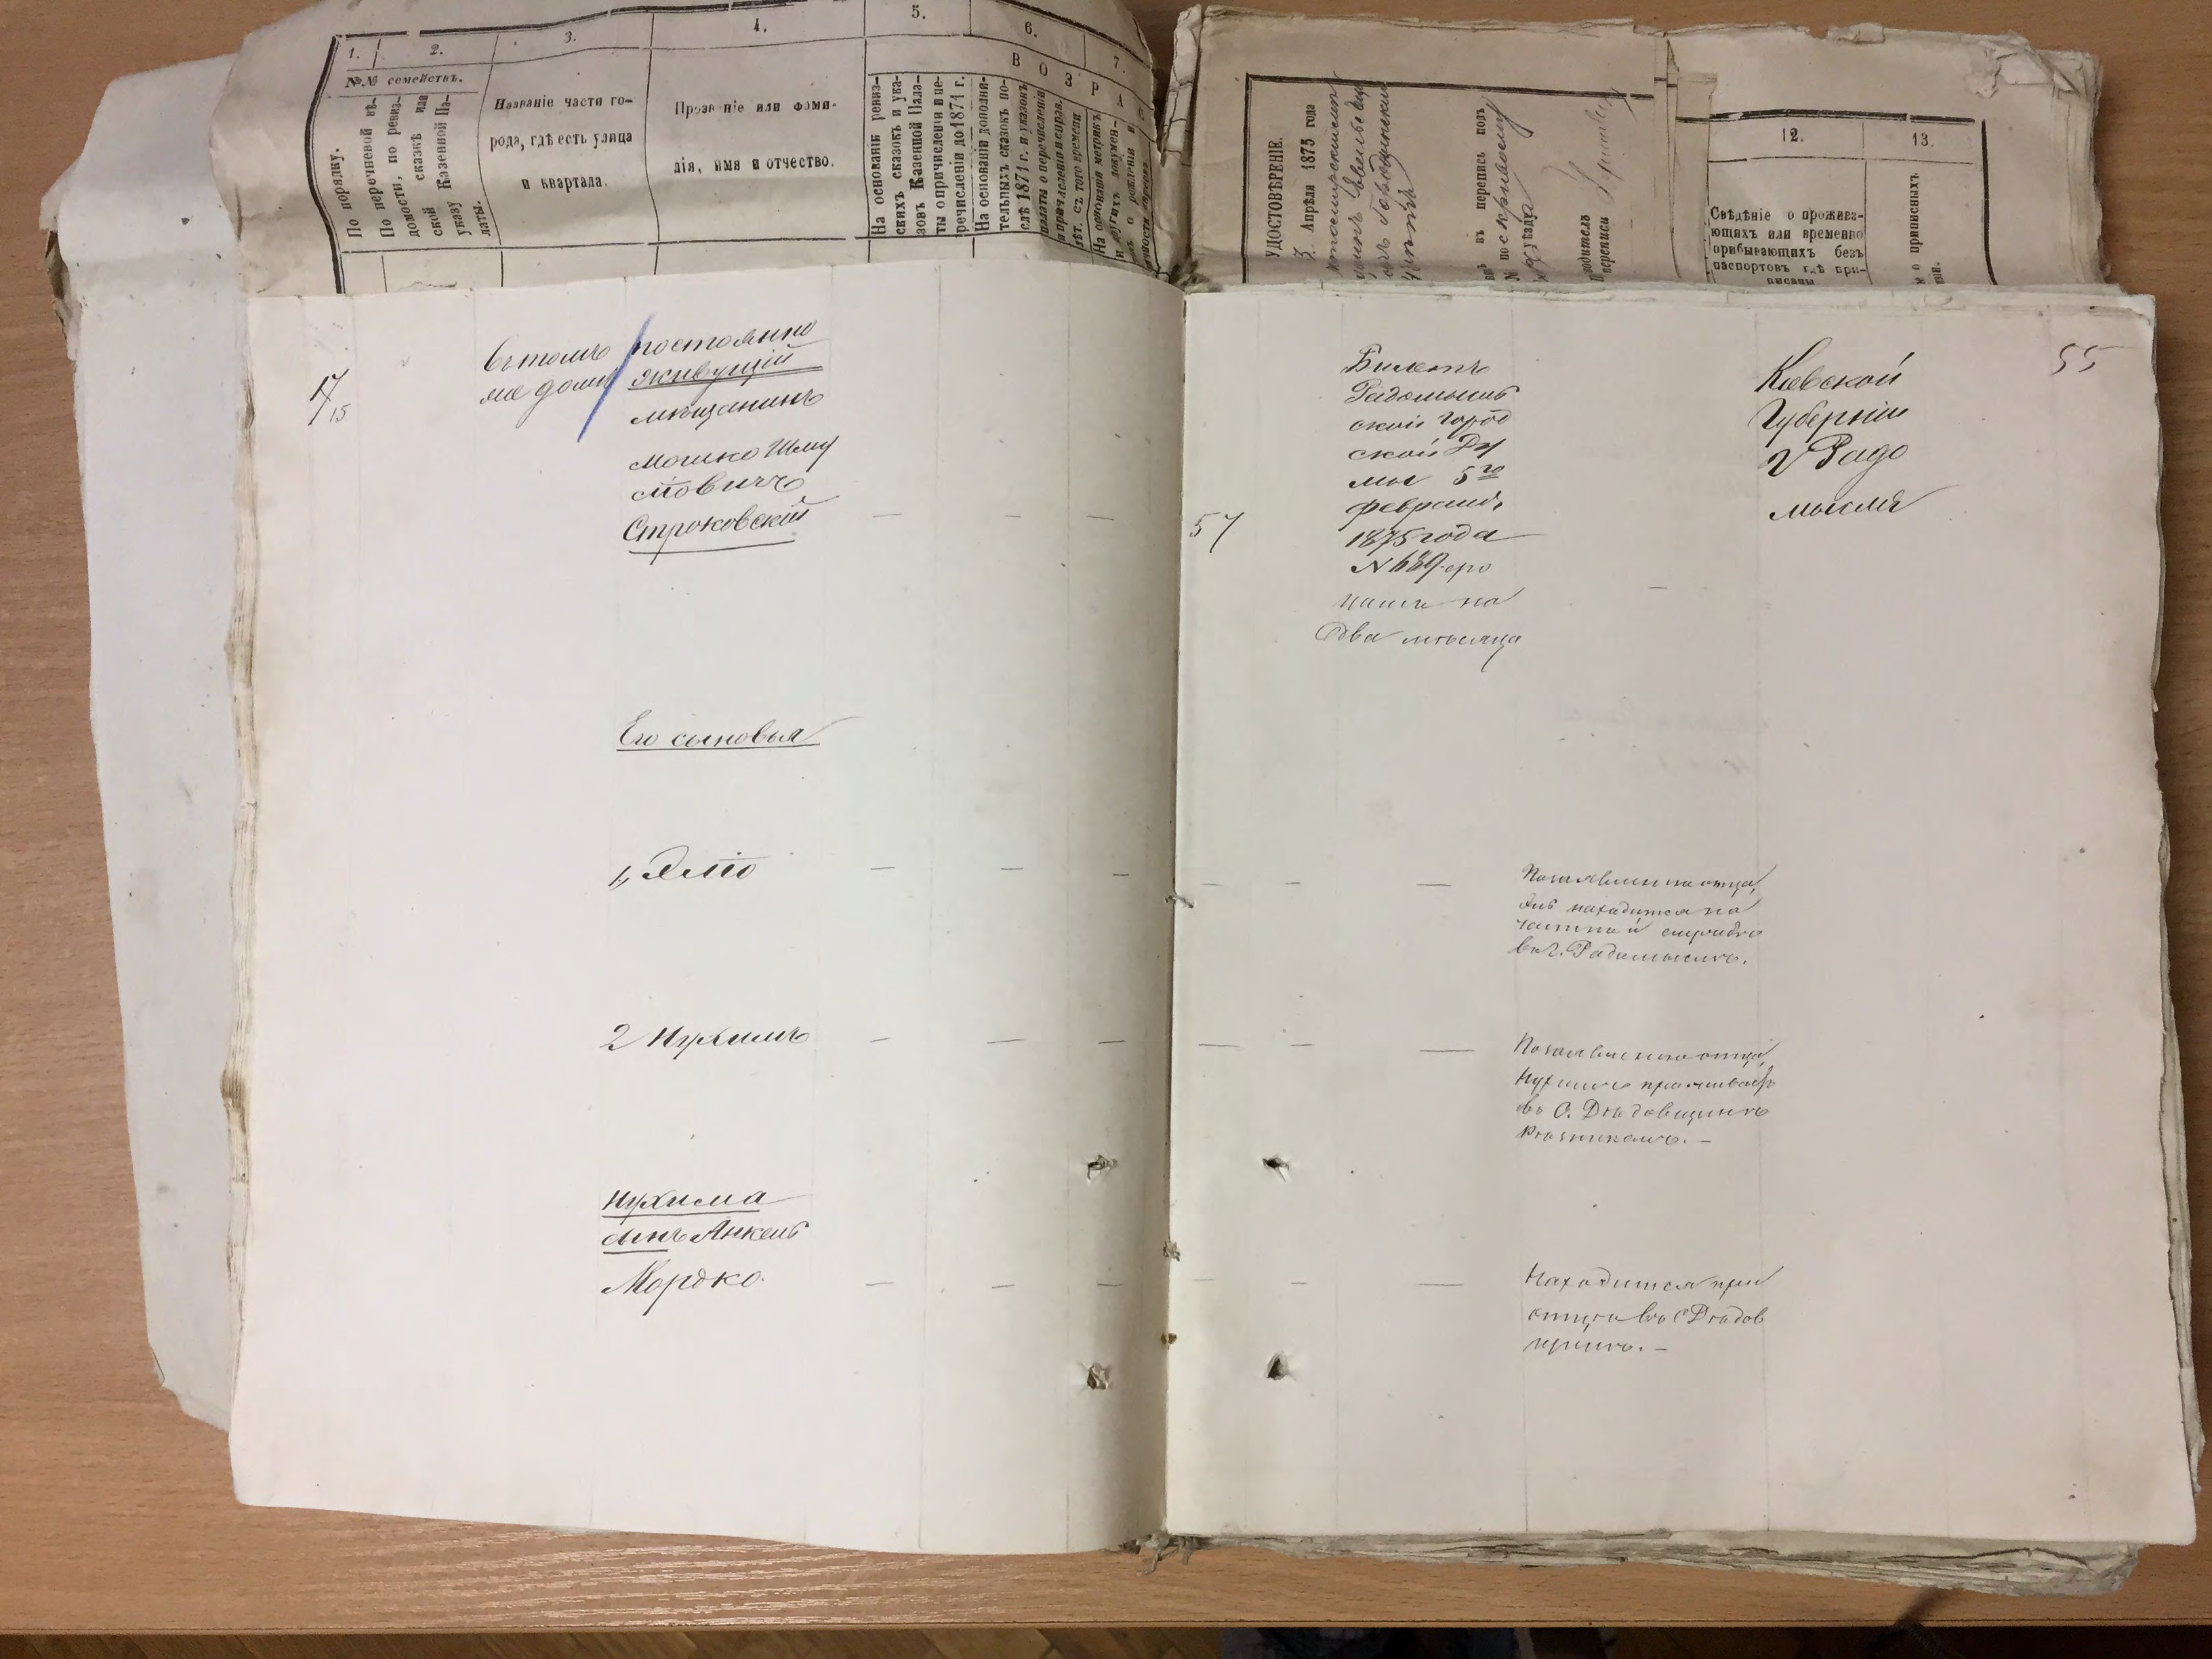 1.
2.
3.
4.
5.
6.
7.
№№ семействъ.
По порядку.
По перечневой вѣ-
домости, по ревиз-
ской сказкѣ или
указу Казенной Па-
латы.
Названіе части го-
рода, гдѣ есть улица
и квартала.
Прозваніе или фами-
лія, имя и отчество.
ВОЗРА
На основаніи ревиз-
скихъ сказокъ и ука-
зовъ Казенной Пала-
ты о причисленіи и пе-
речисленіи до 1871 г.
На основаніи дополни-
тельныхъ сказокъ по-
слѣ 1871 г. и указовъ
палаты о перечисленіи
и причисленіи и справ.
лѣт. съ того времени
На основаніи метрикъ
и другихъ докумен-
о рожденіи и
УДОСТОВѢРЕНІЕ.
Апрѣля 1875 года
въ перепись подъ
№ по скривному
уѣзда
переписи
12.
13.
Свѣдѣніе о прожива-
ющихъ или временно
прибывающихъ безъ
паспортовъ гдѣ при-
писаны
о приписныхъ
17/15
въ томъ
же домѣ
постоянно
живущій
мѣщанинъ
Мошко Шму
лёвичъ
Строковскій
Его сыновья
1, Эліо
2 Нухимъ
Нухима
сынъ Янкель
Мордко.
55
57
Билетъ
Радомысль
ской город
ской Ду
мы 5го
февраля
1875 года
№ 689 сро
комъ на
два мѣсяца
Кіевской
Губерніи
г Радо
мысля
По заявленію отца,
находится на
въ г. Радомыслѣ.
По заявленію отца,
Нухимъ проживаетъ
въ С. Дѣдовщинѣ
Находится при
отцѣ въ С Дѣдов
щинѣ.